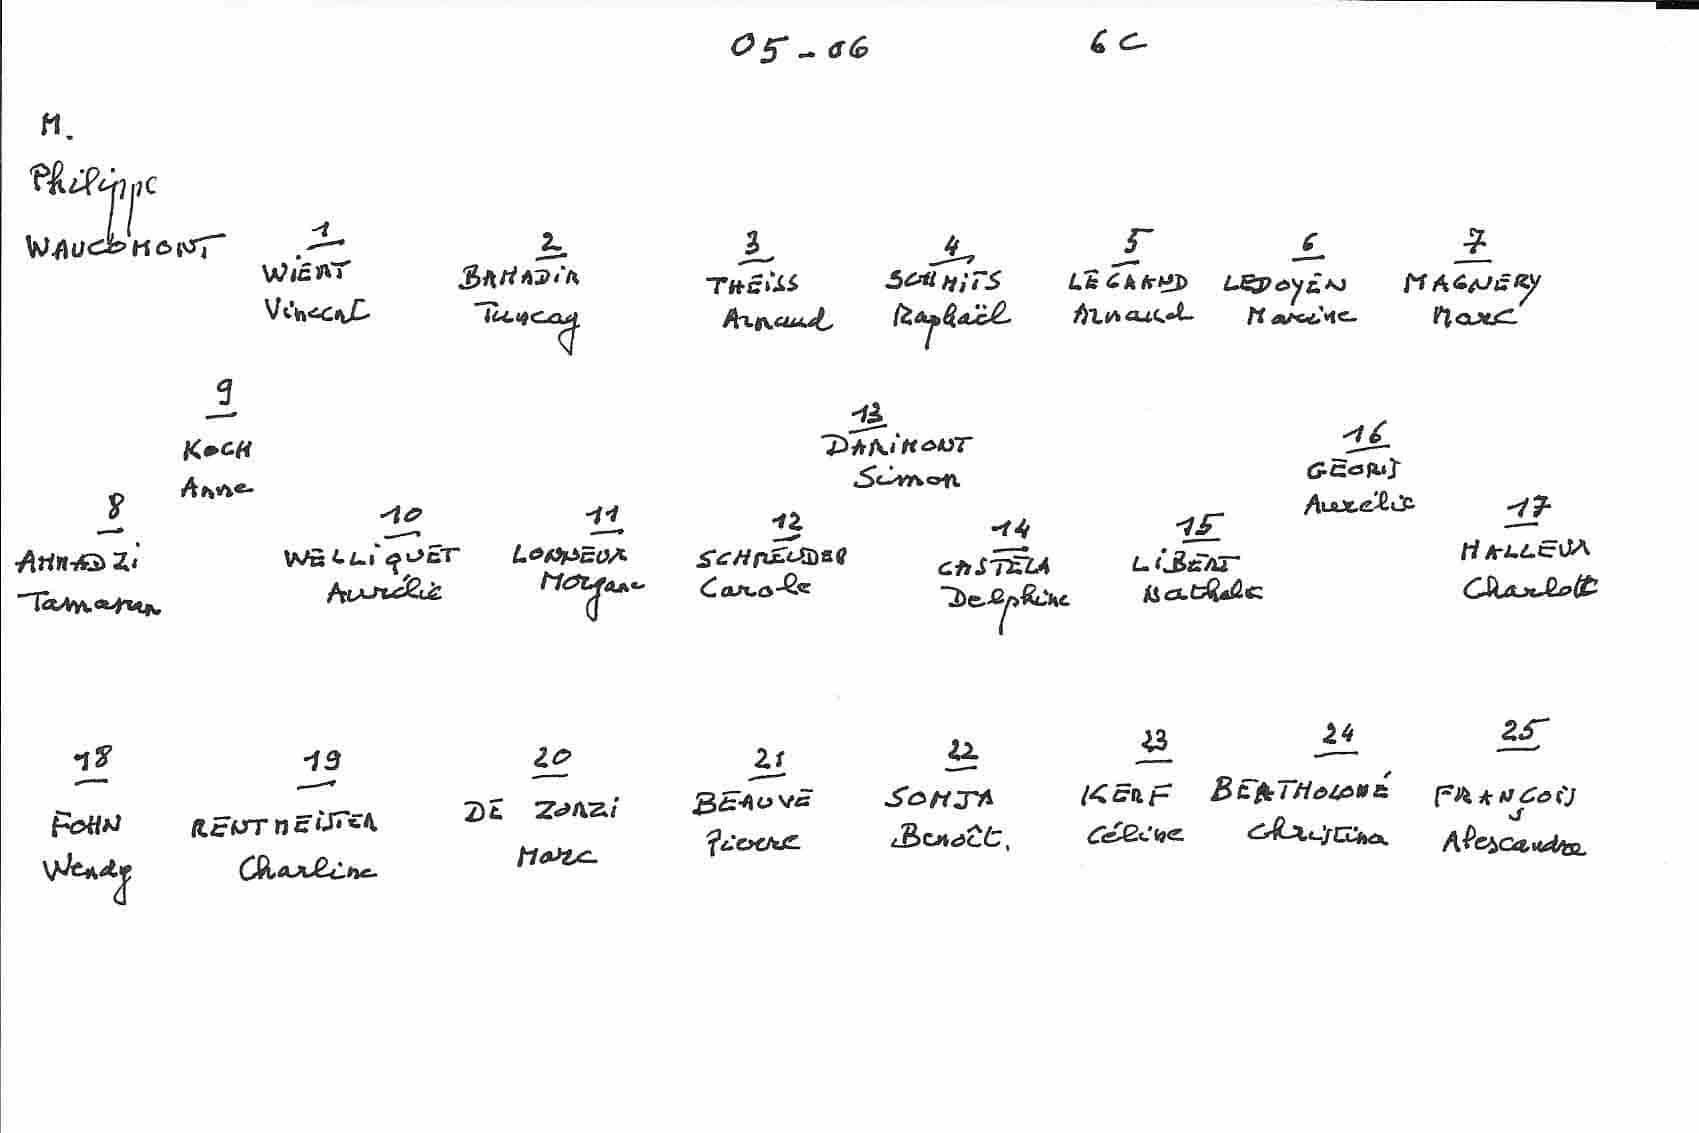 05-06 6C
M.
Philippe
WAUCOMONT
1 2 3 4 5 6 7
WIERT BAHADIR THEISS SCHMITS LEGRAND LEDOYEN MAGNERY
Vincent Tuncay Arnaud Raphaël Arnaud Maxine Marc
9 13 16
KOCH DARIMONT GEORIS
Anne Simon Aurélie
8 10 11 12 14 15 17
WELLIQUET LONNEUX SCHREUDER CASTELA LIBERT HALLEUX
Aurélie Morgane Carole Delphine Nathalie Charlott
18 19 20 21 22 23 24 25
FOHN RENTMEISTER DE ZORZI BEAUVE SOMJA KERF BERTHOLOMÉ FRANÇOIS
Wendy Charline Marc Pierre Benoît. Céline Christina Alexandre